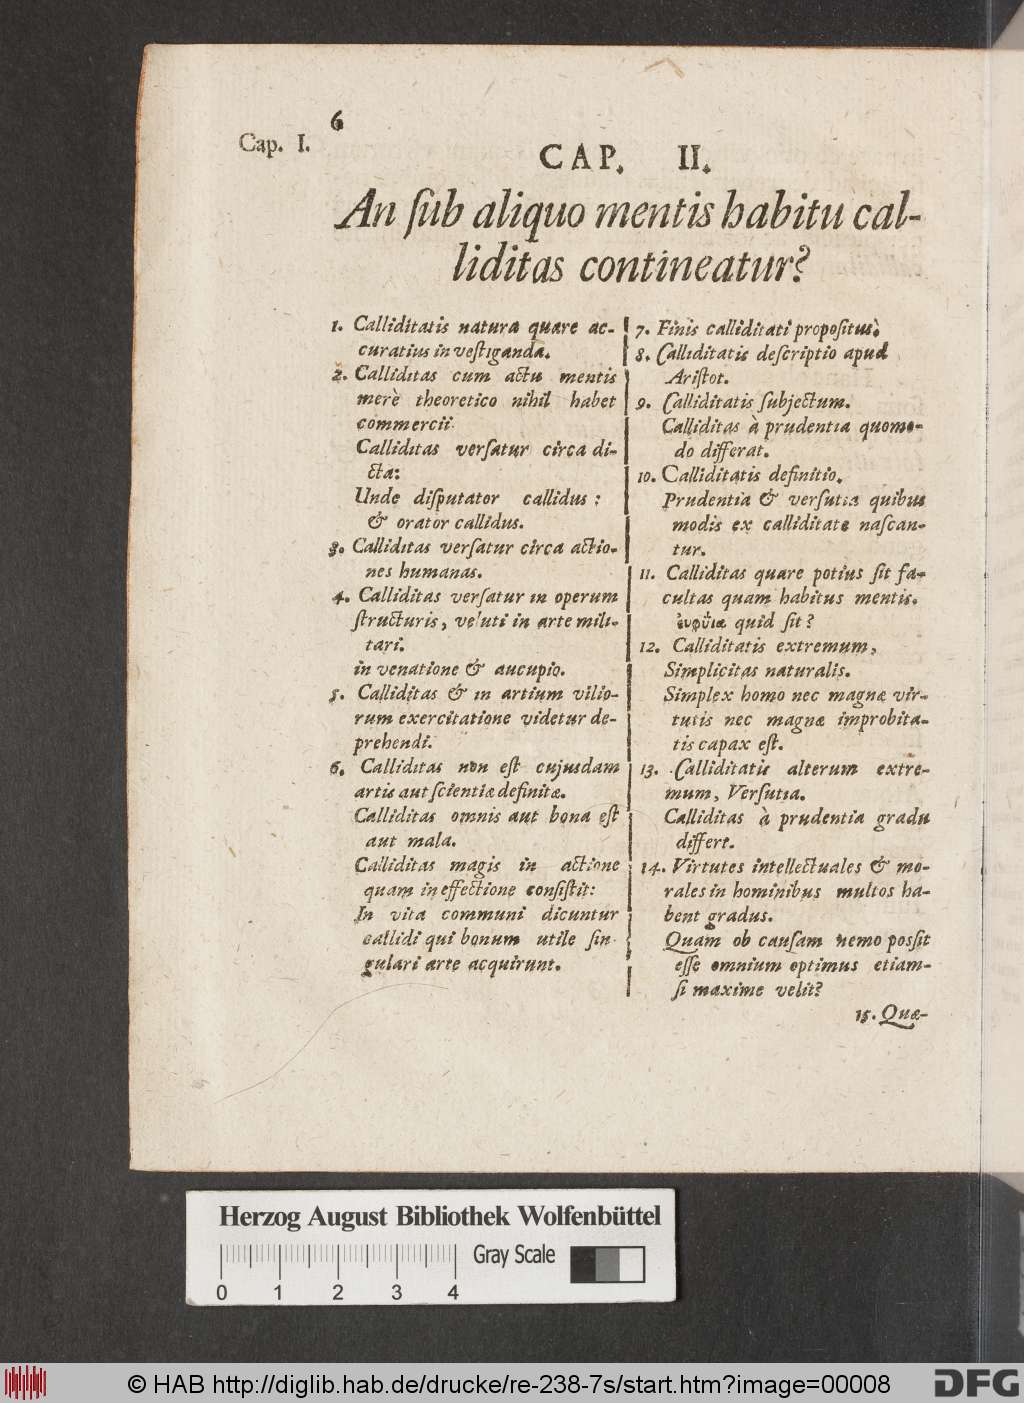 6
Cap. I.
CAP. II.
An ſub aliquo mentis habitu cal-
liditas contineatur?
1. Calliditatis natura quare ac-
curatius inveſtiganda.
2. Calliditas cum actu mentis
merè theoretico nihil habet
commercii.
Calliditas verſatur circa di-
cta:
Unde diſputator callidus:
& orator callidus.
3. Calliditas verſatur circa actio-
nes humanas.
4. Calliditas verſatur in operum
ſtructuris, veluti in arte mili-
tari.
in venatione & aucupio.
5. Calliditas & in artium vilio-
rum exercitatione videtur de-
prehendi.
6. Calliditas non eſt cujusdam
artis aut ſcientiæ definitæ.
Calliditas omnis aut bona eſt
aut mala.
Calliditas magis in actione
quam in effectione conſiſtit:
In vita communi dicuntur
callidi qui bonum utile ſin-
gulari arte acquirunt.
7. Finis calliditati propoſitus.
8. Calliditatis deſcriptio apud
Ariſtot.
9. Calliditatis ſubjectum.
Calliditas à prudentia quomo-
do differat.
10. Calliditatis definitio.
Prudentia & verſutia quibus
modis ex calliditate naſcan-
tur.
11. Calliditas quare potius ſit fa-
cultas quam habitus mentis.
quid ſit?
12. Calliditatis extremum,
Simplicitas naturalis.
Simplex homo nec magnæ vir-
tutis nec magnæ improbita-
tis capax eſt.
13. Calliditatis alterum extre-
mum, Verſutia.
Calliditas à prudentia gradu
differt.
14. Virtutes intellectuales & mo-
rales in hominibus multos ha-
bent gradus.
Quam ob cauſam nemo poſſit
eſſe omnium optimus etiam-
ſi maxime velit?
15. Quæ-
Herzog August Bibliothek Wolfenbüttel
Gray Scale
0 1 2 3 4
© HAB http://diglib.hab.de/drucke/re-238-7s/start.htm?image=00008
DFG